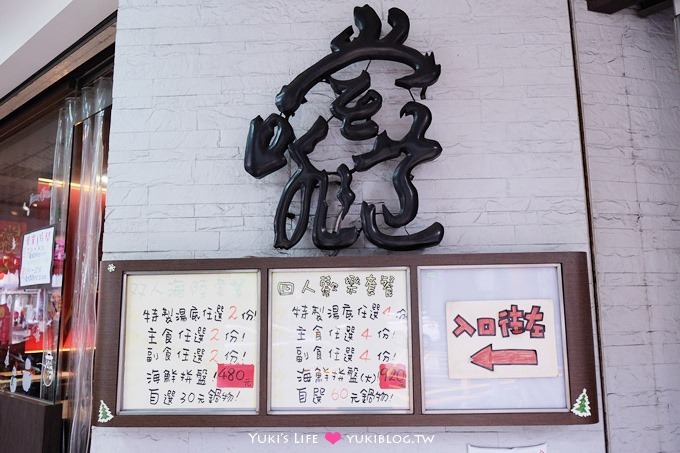 双人海陸套餐
特製湯底任選2份!
主食任選 2 份!
副食任選 2 份!
海鮮拼盤! 480元
自選30元鍋物!
四人歡樂套餐
特製湯底任選4份!
主食任選 4 份!
副食任選 4 份!
海鮮拼盤(大) 920元
自選60元鍋物!
入口往左
YUKI'S LIFE YUKIBLOG.TW